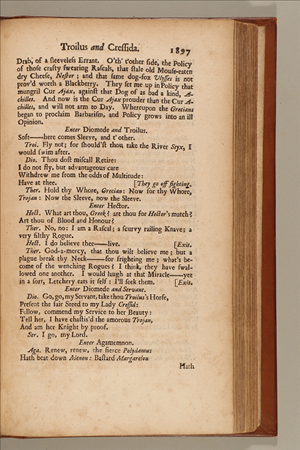 Troilus and Cressida. 1897
Drab, of a sleeveless Errant. O'th' t'other side, the Policy
of those crafty swearing Rascals, that stale old Mouse-eaten
dry Cheese, Nestor; and that same dog-fox Ulysses is not
prov'd worth a Blackberry. They set me up in Policy that
mungril Cur Ajax, against that Dog of as bad a kind, A-
chilles. And now is the Cur Ajax prouder than the Cur A-
chilles, and will not arm to Day. Whereupon the Grecians
began to proclaim Barbarism, and Policy grows into an ill
Opinion.
Enter Diomede and Troilus.
Soft——here comes Sleeve, and t'other.
Troi. Fly not; for should'st thou take the River Styx, I
would swim after.
Dio. Thou dost miscall Retire:
I do not fly, but advantageous care
Withdrew me from the odds of Multitude:
Have at thee. [They go off fighting.
Ther. Hold thy Whore, Grecian: Now for thy Whore,
Trojan: Now the Sleeve, now the Sleeve.
Enter Hector.
Hect. What art thou, Greek? art thou for Hector's match?
Art thou of Blood and Honour?
Ther. No, no: I am a Rascal; a scurvy railing Knave; a
very filthy Rogue.
Hect. I do believe thee——live. [Exit.
Ther. God-a-mercy, that thou wilt believe me; but a
plague break thy Neck——for frighting me; what's be-
come of the wenching Rogues? I think, they have swal-
lowed one another. I would laugh at that Miracle——yet
in a sort, Letchery eats it self: I'll seek them. [Exit.
Enter Diomede and Servant.
Dio. Go, go, my Servant, take thou Troilus's Horse,
Present the fair Steed to my Lady Cressid:
Fellow, commend my Service to her Beauty:
Tell her, I have chastis'd the amorous Trojan,
And am her Knight by proof.
Ser. I go, my Lord.
Enter Agamemnon.
Aga. Renew, renew, the fierce Polydamus
Hath beat down Menon: Bastard Margarelon
Hath